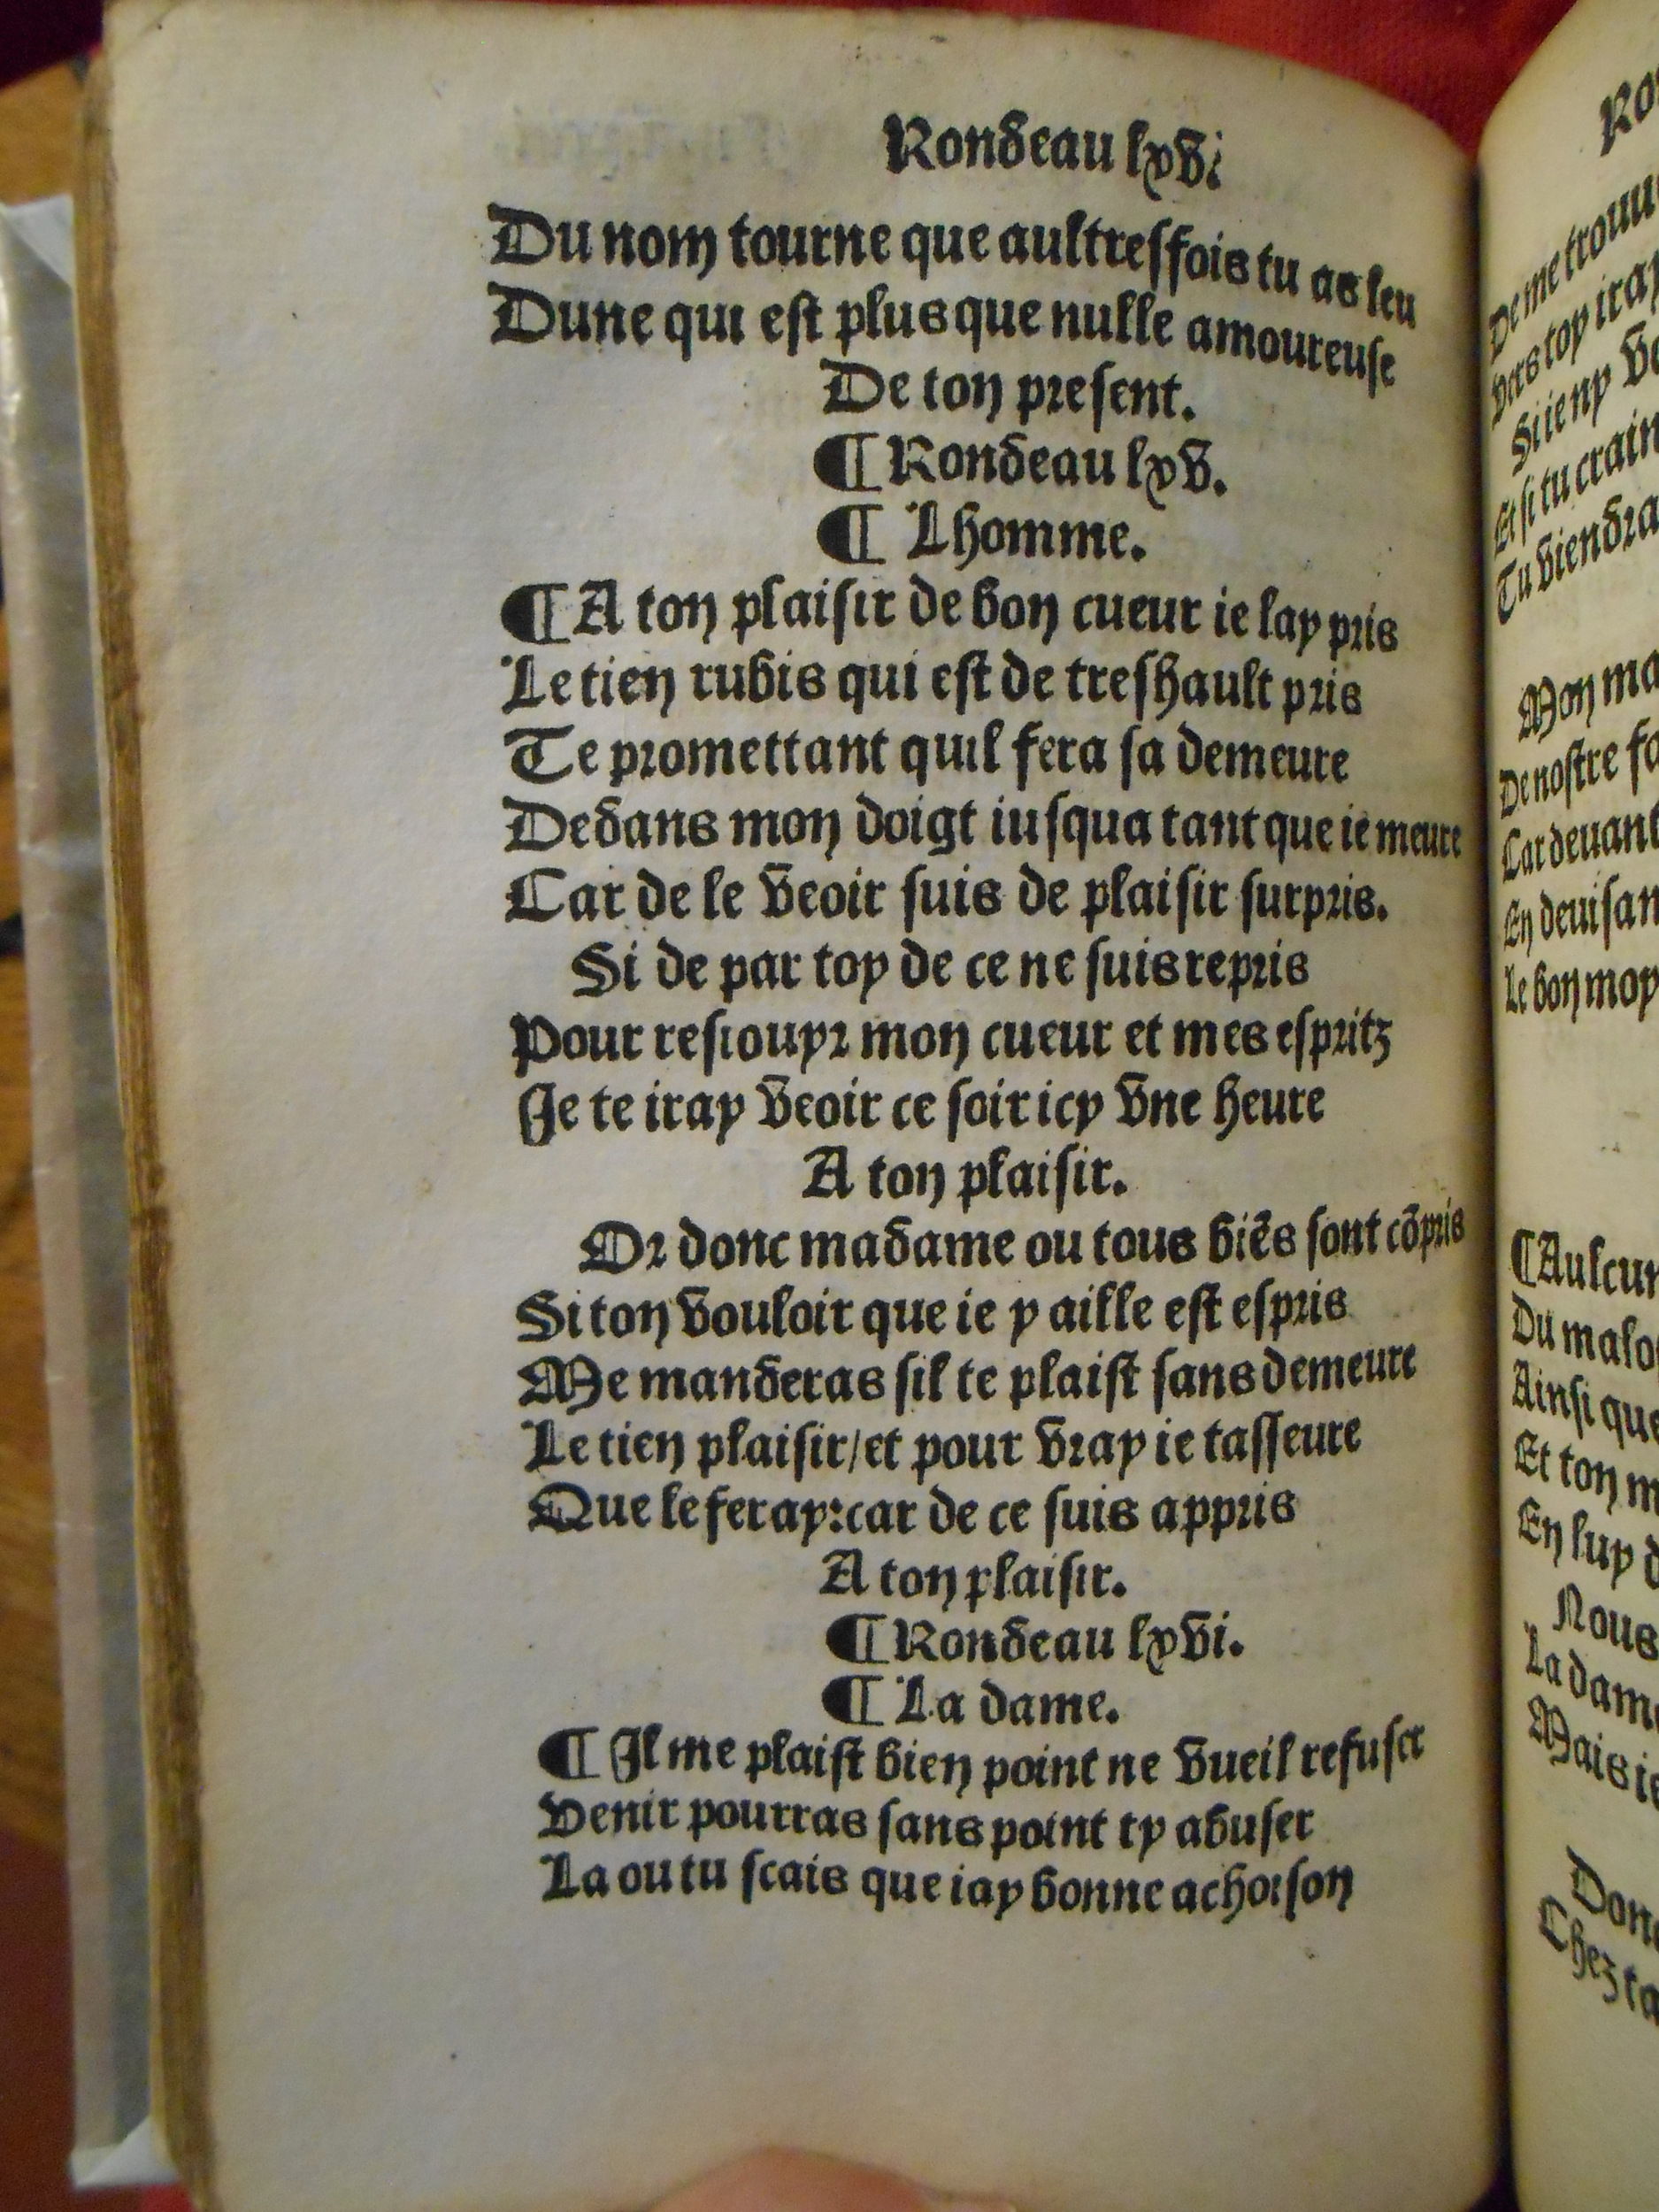 Rondeau lxvi
Du nom tourne que aultresfois tu as leu
Dune qui est plus que nulle amoureuse
De ton present.
¶ Rondeau lxv.
¶ Lhomme.
¶ A ton plaisir de bon cueur ie lay pris
Le tien rubis qui est de treshault pris
Te promettant quil fera sa demeure
Dedans mon doigt iusqua tant que ie meure
Car de le veoir suis de plaisir surpris.
Si de par toy de ce ne suis repris
Pour resiouyr mon cueur et mes espritz
Je te iray veoir ce soir icy vne heure
A ton plaisir.
Or donc madame ou tous biẽs sont cõpris
Si ton vouloir que ie y aille est espris
Me manderas sil te plaist sans demeure
Le tien plaisir/et pour vray ie tasseure
Que le feray:car de ce suis appris
A ton plaisir.
¶ Rondeau lxvi.
¶ La dame.
¶ Il me plaist bien point ne vueil refuser
Venir pourras sans point ty abuser
La ou tu scais que iay bonne achoison
De me trouu
Vers toy iray
Si ie ny
Et si tu crain
Tu viendra
Mon ma
De nostre
Car deuant
En deuisan
Le bon moy
¶ Aulcun
Du malo
Ainsi que
Et ton m
En luy d
Nous
La dame
Mais ie
Donc
Chez ta